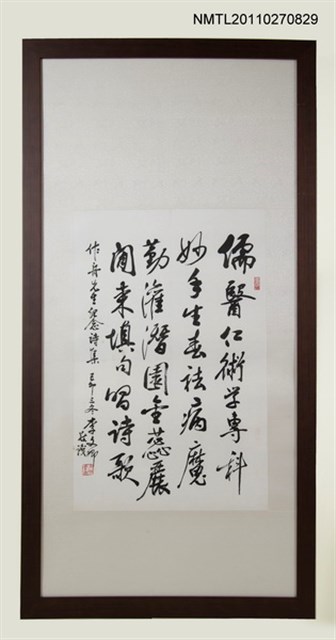 NMTL20110270829
儒醫仁術学專科
妙手生春祛病魔
勤灌潛園金蕊展
閒来填句習詩歌
作舟先生紀念詩集 己卯三冬 李